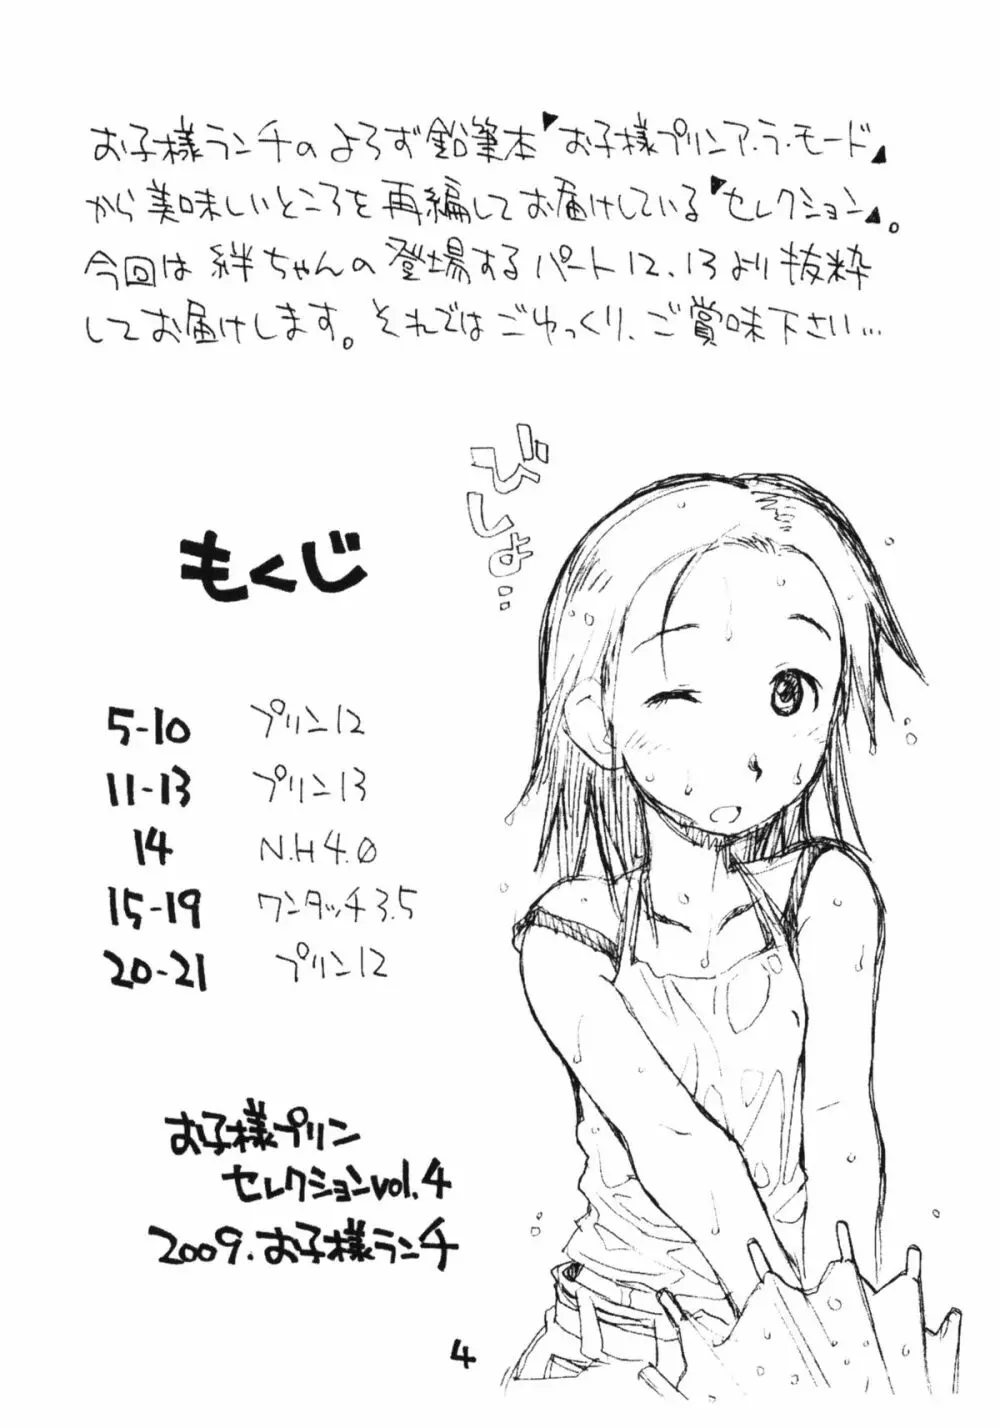 お子様ランチのよろず鉛筆本『お子様プリンア・ラ・モード』
から美味しいところを再編してお届けしている『セレクション』。
今回は絆ちゃんの登場するパート12、13より抜粋
してお届けします。それではごゆっくり、ご賞味下さい…
びしょ…
もくじ
5-10 プリン12
11-13 プリン13
14 N.H4.0
15-19 ワンタッチ3.5
20-21 プリン12
お子様プリン
セレクションvol.4
2009.お子様ランチ
4